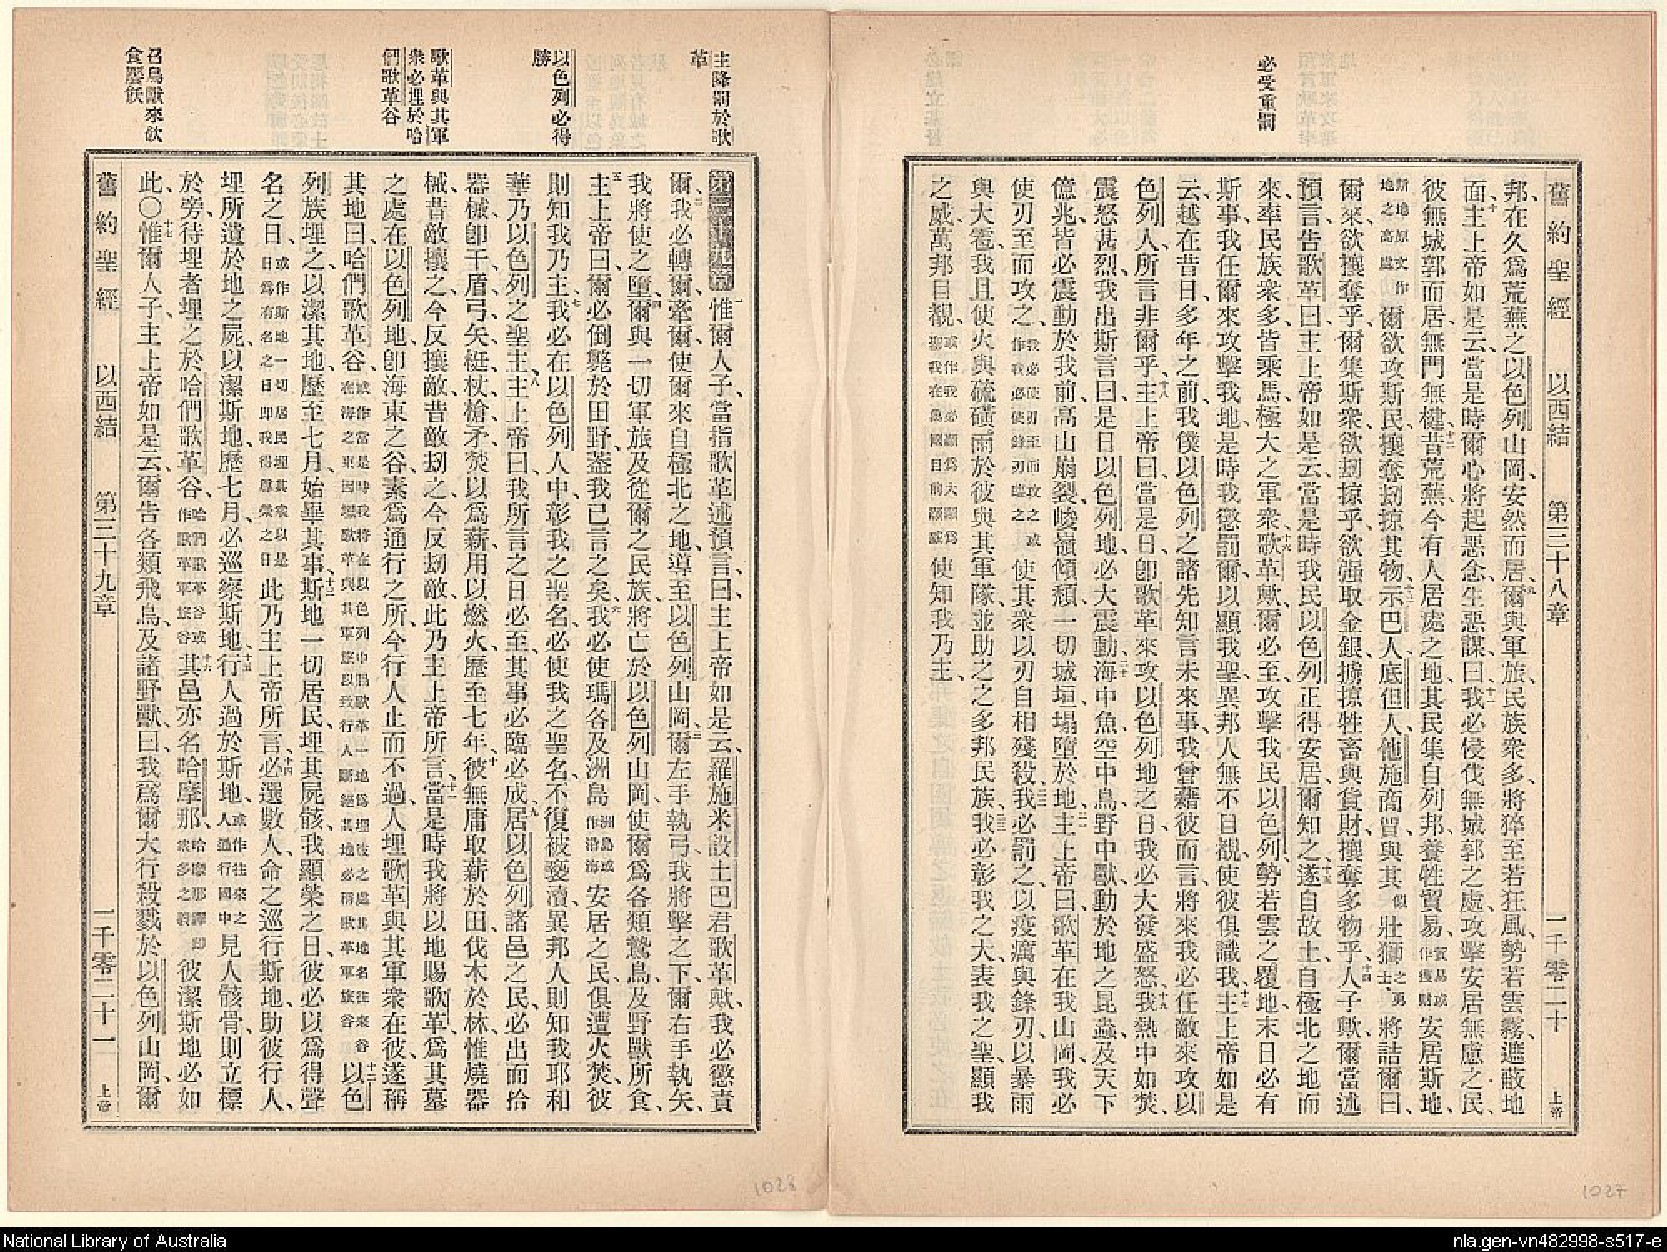 必受重罰
舊約聖經 以西結 第三十八章 一千零二十 上帝
邦、在久爲荒蕪之以色列山岡、安然而居、爾與軍旅、民族衆多、將猝至若狂風、勢若雲霧、遮蔽地
面、主上帝如是云、當是時爾心將起惡念、生惡謀、曰、我必侵伐無城郭之處、攻擊安居無慮之民、
彼無城郭而居、無門無楗、昔荒蕪今有人居處之地、其民集自列邦、養牲貿易、安居斯地、
爾欲攻斯民、攘奪刧掠其物、示巴人、底但人、他施商賈、與其壯獅、將詰爾曰、
爾來欲攘奪乎、爾集斯衆、欲刧掠乎、欲强取金銀、擄掠牲畜與貨財、攘奪多物乎、人子歟、爾當述
預言告歌革曰、主上帝如是云、當是時我民以色列正得安居、爾知之、遂自故土、自極北之地而
來、率民族衆多、皆乘馬、極大之軍衆、歌革歟、爾必至攻擊我民以色列、勢若雲之覆地、末日必有
斯事、我任爾來攻擊我地、是時我懲罰爾、以顯我聖、異邦人無不目覩、使彼俱識我、主上帝如是
云、越在昔日多年之前、我僕以色列之諸先知言未來事、我曾藉彼而言、將來我必任敵來攻以
色列人、所言非爾乎、主上帝曰、當是日、卽歌革來攻以色列地之日、我必大發盛怒、我熱中如焚、
震怒甚烈、我出斯言曰、是日以色列地、必大震動、海中魚、空中鳥、野中獸、動於地之昆蟲、及天下
億兆、皆必震動於我前、高山崩裂、峻嶺傾頹、一切城垣塌墮於地、主上帝曰、歌革在我山岡、我必
使刃至而攻之、使其衆以刃自相殘殺、我必罰之以疫癘與鋒刃、以暴雨
與大雹、我且使火與硫磺雨於彼與其軍隊、並助之之多邦民族、我必彰我之大、表我之聖、顯我
之威、萬邦目覩、使知我乃主、
主降罰於歌革
以色列必得勝
歌革與其軍衆必埋於哈們歌革谷
召鳥獸來飲食饜飫
惟爾人子、當指歌革述預言曰、主上帝如是云、羅施米設土巴君歌革歟、我必懲責
爾、我必轉爾、牽爾、使爾來自極北之地、導至以色列山岡、爾左手執弓、我將擊之下、爾右手執矢、
我將使之墮、爾與一切軍旅、及從爾之民族、將亡於以色列山岡、使爾爲各類鷙鳥及野獸所食、
主上帝曰、爾必倒斃於田野、葢我已言之矣、我必使瑪各及洲島安居之民、俱遭火焚、彼
則知我乃主、我必在以色列人中彰我之聖名、必使我之聖名、不復被褻瀆、異邦人則知我耶和
華乃以色列之聖主、主上帝曰、我所言之日必至、其事必臨必成、居以色列諸邑之民、必出而拾
器械、卽干盾弓矢、梃杖槍矛、焚以爲薪、用以燃火、歷至七年、彼無庸取薪於田、伐木於林、惟燒器
械、昔敵攘之、今反攘敵、昔敵刧之、今反刧敵、此乃主上帝所言、當是時、我將以地賜歌革、爲其墓
之處、在以色列地、卽海東之谷、素爲通行之所、今行人止而不過、人埋歌革與其軍衆在彼、遂稱
其地曰、哈們歌革谷、以色
列族埋之、以潔其地、歷至七月、始畢其事、斯地一切居民、埋其屍骸、我顯榮之日、彼必以爲得聲
名之日、此乃主上帝所言、必選數人、命之巡行斯地、助彼行人、
埋所遺於地之屍、以潔斯地、歷七月、必巡察斯地、行人過於斯地、見人骸骨、則立標
於旁、待埋者埋之於哈們歌革谷、其邑亦名哈摩那、彼潔斯地必如
此、○惟爾人子、主上帝如是云、爾告各類飛鳥及諸野獸曰、我爲爾大行殺戮於以色列山岡、爾
舊約聖經 以西結 第三十九章 一千零二十一 上帝
1028
1027
National Library of Australia
nla.gen-vn482998-s517-e